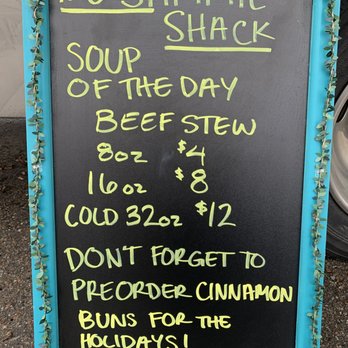 SHACK
SOUP
OF THE DAY
BEEF STEW
8oz $4
16oz $8
COLD 32oz $12
DON'T FORGET TO
PREORDER CINNAMON
BUNS FOR THE
HOLIDAYS!